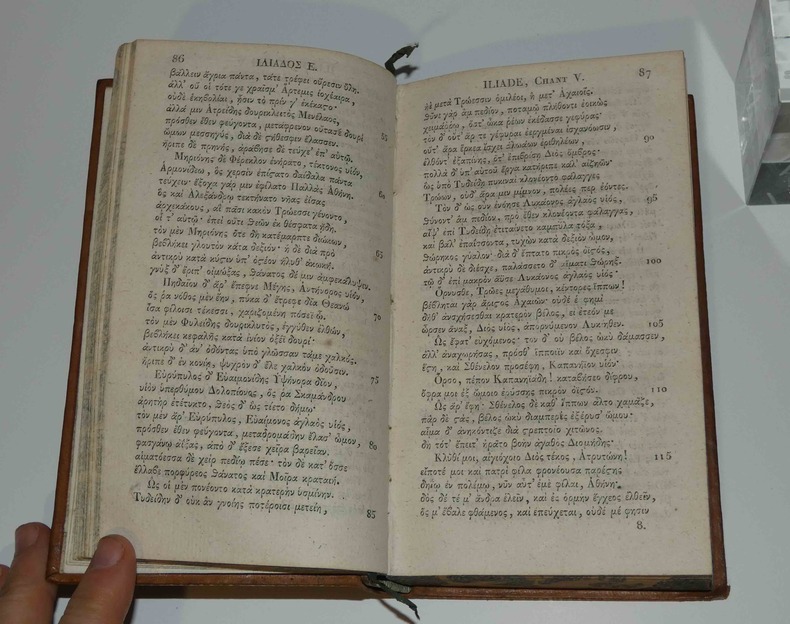 86 ΙΛΙΑΔΟΣ Ε.
βάλλειν ἄγρια πάντα, τάτε τρέφει οὔρεσιν ὕλη.
ἀλλ' οὔ οἱ τότε γε χραῖσμ' Ἄρτεμις ἰοχέαιρα,
οὐδὲ ἑκηβολίαι, ᾗσιν τὸ πρίν γ' ἐκέκαστο·
ἀλλά μιν Ἀτρείδης δουρικλειτὸς Μενέλαος,
πρόσθεν ἕθεν φεύγοντα, μετάφρενον οὔτασε δουρὶ 55
ὤμων μεσσηγὺς, διὰ δὲ στήθεσφιν ἔλασσεν.
ἤριπε δὲ πρηνὴς, ἀράβησε δὲ τεύχε' ἐπ' αὐτῷ.
Μηριόνης δὲ Φέρεκλον ἐνήρατο, τέκτονος υἱὸν,
Ἁρμονίδεω, ὃς χερσὶν ἐπίστατο δαίδαλα πάντα
τεύχειν· ἔξοχα γάρ μιν ἐφίλατο Παλλὰς Ἀθήνη. 60
ὃς καὶ Ἀλεξάνδρῳ τεκτήνατο νῆας ἐΐσας
ἀρχεκάκους, αἳ πᾶσι κακὸν Τρώεσσι γένοντο,
οἷ τ' αὐτῷ· ἐπεὶ οὔτι θεῶν ἐκ θέσφατα ᾔδη.
τὸν μὲν Μηριόνης ὅτε δὴ κατέμαρπτε διώκων,
βεβλήκει γλουτὸν κάτα δεξιόν· ἡ δὲ διὰ πρὸ 65
ἀντικρὺ κατὰ κύστιν ὑπ' ὀστέον ἤλυθ' ἀκωκή.
γνὺξ δ' ἔριπ' οἰμώξας, θάνατος δέ μιν ἀμφεκάλυψεν.
Πηδαῖον δ' ἄρ' ἔπεφνε Μέγης, Ἀντήνορος υἱὸν,
ὅς ῥα νόθος μὲν ἔην, πύκα δ' ἔτρεφε δῖα Θεανὼ
ἶσα φίλοισι τέκεσσι, χαριζομένη πόσεϊ ᾧ. 70
τὸν μὲν Φυλείδης δουρικλυτὸς, ἐγγύθεν ἐλθὼν,
βεβλήκει κεφαλῆς κατὰ ἰνίον ὀξέϊ δουρί·
ἀντικρὺ δ' ἀν' ὀδόντας ὑπὸ γλῶσσαν τάμε χαλκός.
ἤριπε δ' ἐν κονίῃ, ψυχρὸν δ' ἕλε χαλκὸν ὀδοῦσιν.
Εὐρύπυλος δ' Εὐαιμονίδης Ὑψήνορα δῖον, 75
υἱὸν ὑπερθύμου Δολοπίονος, ὅς ῥα Σκαμάνδρου
ἀρητὴρ ἐτέτυκτο, θεὸς δ' ὣς τίετο δήμῳ·
τὸν μὲν ἄρ' Εὐρύπυλος, Εὐαίμονος ἀγλαὸς υἱὸς,
πρόσθεν ἕθεν φεύγοντα, μεταδρομάδην ἔλασ' ὦμον, 80
φασγάνῳ ἀΐξας, ἀπὸ δ' ἔξεσε χεῖρα βαρεῖαν.
αἱματόεσσα δὲ χεὶρ πεδίῳ πέσε· τὸν δὲ κατ' ὄσσε
ἔλλαβε πορφύρεος θάνατος καὶ Μοῖρα κραταιή.
Ὣς οἱ μὲν πονέοντο κατὰ κρατερὴν ὑσμίνην.
Τυδείδην δ' οὐκ ἂν γνοίης ποτέροισι μετείη, 85
ILIADE, CHANT V. 87
ἠὲ μετὰ Τρώεσσιν ὁμιλέοι, ἢ μετ' Ἀχαιοῖς.
θῦνε γὰρ ἂμ πεδίον, ποταμῷ πλήθοντι ἐοικὼς
χειμάῤῥῳ, ὅστ' ὦκα ῥέων ἐκέδασσε γεφύρας·
τὸν δ' οὔτ' ἄρ τε γέφυραι ἐεργμέναι ἰσχανόωσιν,
οὔτ' ἄρα ἕρκεα ἴσχει ἀλωάων ἐριθηλέων, 90
ἐλθόντ' ἐξαπίνης, ὅτ' ἐπιβρίσῃ Διὸς ὄμβρος·
πολλὰ δ' ὑπ' αὐτοῦ ἔργα κατήριπε κάλ' αἰζηῶν·
ὣς ὑπὸ Τυδείδῃ πυκιναὶ κλονέοντο φάλαγγες
Τρώων, οὐδ' ἄρα μιν μίμνον, πολέες περ ἐόντες.
Τὸν δ' ὡς οὖν ἐνόησε Λυκάονος ἀγλαὸς υἱὸς, 95
θύνοντ' ἂμ πεδίον, πρὸ ἕθεν κλονέοντα φάλαγγας,
αἶψ' ἐπὶ Τυδείδῃ ἐτιταίνετο καμπύλα τόξα,
καὶ βάλ' ἐπαΐσσοντα, τυχὼν κατὰ δεξιὸν ὦμον,
θώρηκος γύαλον· διὰ δ' ἔπτατο πικρὸς ὀϊστὸς,
ἀντικρὺ δὲ διέσχε, παλάσσετο δ' αἵματι θώρηξ. 100
τῷ δ' ἐπὶ μακρὸν ἄϋσε Λυκάονος ἀγλαὸς υἱός·
Ὄρνυσθε, Τρῶες μεγάθυμοι, κέντορες ἵππων!
βέβληται γὰρ ἄριστος Ἀχαιῶν· οὐδέ ἑ φημὶ
δήθ' ἀνσχήσεσθαι κρατερὸν βέλος, εἰ ἐτεόν με
ὦρσεν ἄναξ, Διὸς υἱὸς, ἀπορνύμενον Λυκίηθεν. 105
Ὣς ἔφατ' εὐχόμενος· τὸν δ' οὐ βέλος ὠκὺ δάμασσεν,
ἀλλ' ἀναχωρήσας, πρόσθ' ἵπποιϊν καὶ ὄχεσφιν
ἔστη, καὶ Σθένελον προσέφη, Καπανήϊον υἱόν·
Ὄρσο, πέπον Καπανηϊάδη! καταβήσεο δίφρου,
ὄφρα μοι ἐξ ὤμοιο ἐρύσσῃς πικρὸν ὀϊστόν. 110
Ὣς ἄρ' ἔφη· Σθένελος δὲ καθ' ἵππων ἆλτο χαμᾶζε,
πὰρ δὲ στὰς, βέλος ὠκὺ διαμπερὲς ἐξέρυσ' ὤμου·
αἷμα δ' ἀνηκόντιζε διὰ στρεπτοῖο χιτῶνος.
δὴ τότ' ἔπειτ' ἠρᾶτο βοὴν ἀγαθὸς Διομήδης·
Κλῦθί μοι, αἰγιόχοιο Διὸς τέκος, Ἀτρυτώνη! 115
εἴποτέ μοι καὶ πατρὶ φίλα φρονέουσα παρέστης
δηΐῳ ἐν πολέμῳ, νῦν αὖτ' ἐμὲ φίλαι, Ἀθήνη·
δὸς δέ τέ μ' ἄνδρα ἑλεῖν, καὶ ἐς ὁρμὴν ἔγχεος ἐλθεῖν,
ὅς μ' ἔβαλε φθάμενος, καὶ ἐπεύχεται, οὐδέ μέ φησιν
8.